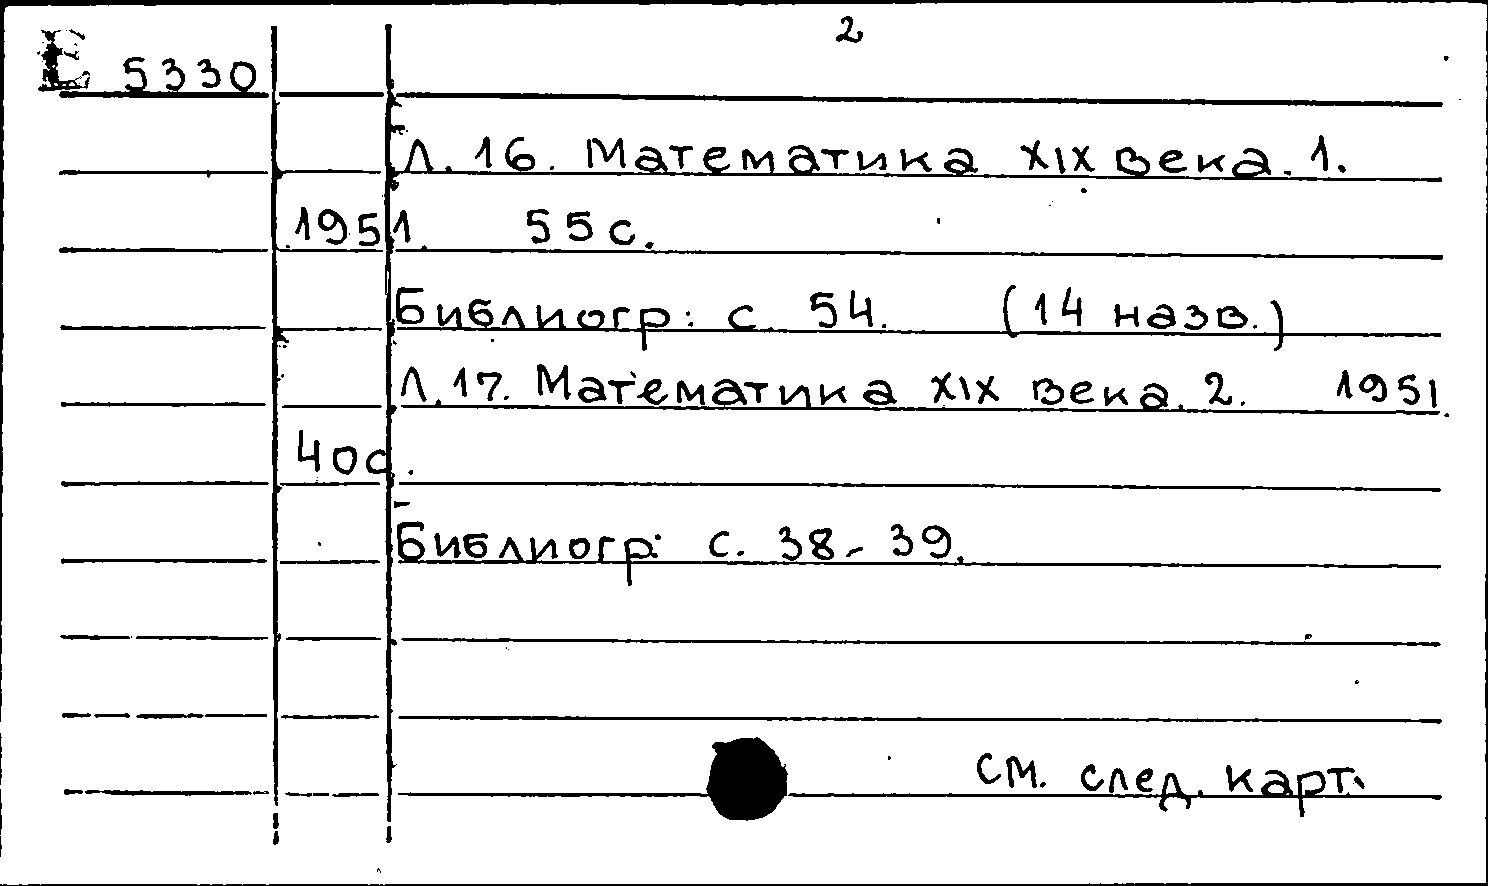 2
Е 5330
Л. 16. Математика XIX века. 1.
1951. 55 с.
Библиогр: с 54. (14 назв.)
Л. 17. Математика XIX века. 2. 1951.
40с.
Библиогр: с. 38-39.
см. след. карт.